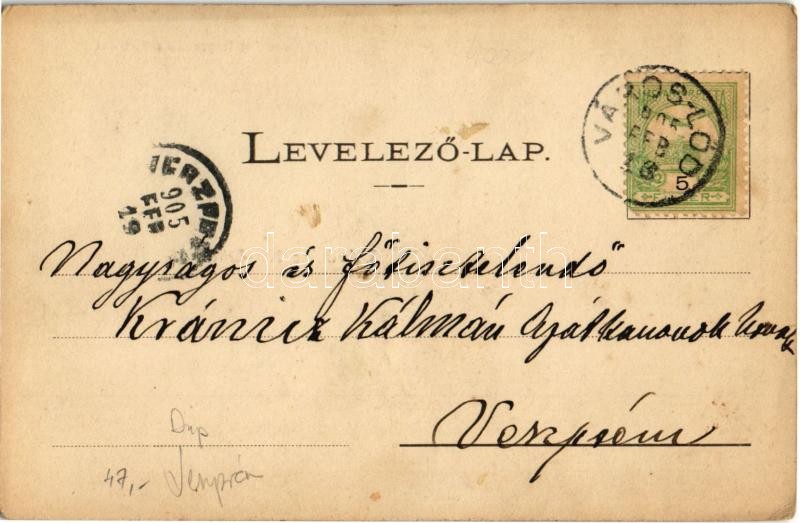 VÁROSLŐD
905
FEB
18
5
FILLÉR
LEVELEZŐ-LAP.
VESZPRÉM
905
FEB
19
Nagyságos és főtisztelendő
Kránicz Kálmán Apátkanonok Urnak
Veszprém
darabanth
Dnp
47,- Veszprém